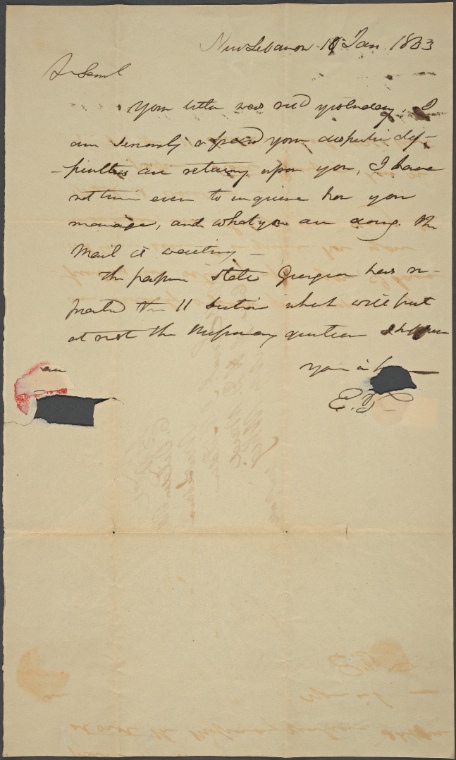 New Lebanon 18 Jan. 1833
Dr Saml
Your letter was recd yesterday, I
am seriously afraid your dispeptic dif-
-ficulties are returng upon you, I have
not time even to inquire how you
manage, and what you are doing. The
Mail is waiting —
The papers state Georgia has re-
pealed the 11 section which will put
at rest the Missionary question I hope
Your in
E. T